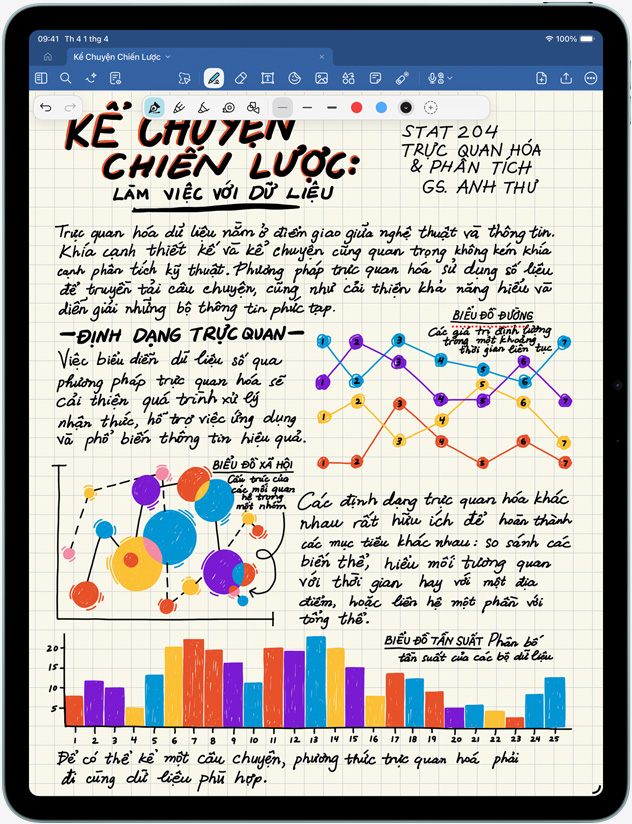 09:41 Th 4 1 thg 4
100%
Kể Chuyện Chiến Lược
KỂ CHUYỆN
CHIẾN LƯỢC:
LÀM VIỆC VỚI DỮ LIỆU
STAT 204
TRỰC QUAN HÓA
& PHÂN TÍCH
GS. ANH THƯ
Trực quan hóa dữ liệu nằm ở điểm giao giữa nghệ thuật và thông tin.
Khía cạnh thiết kế và kể chuyện cũng quan trọng không kém khía
cạnh phân tích kỹ thuật. Phương pháp trực quan hóa sử dụng số liệu
để truyền tải câu chuyện, cũng như cải thiện khả năng hiểu và
diễn giải những bộ thông tin phức tạp.
ĐỊNH DẠNG TRỰC QUAN
Việc biểu diễn dữ liệu số qua
phương pháp trực quan hóa sẽ
cải thiện quá trình xử lý
nhận thức, hỗ trợ việc ứng dụng
và phổ biến thông tin hiệu quả.
BIỂU ĐỒ ĐƯỜNG
Các giá trị định lượng
trong một khoảng
thời gian liên tục
1 2 3 4 5 6 7
1 2 3 4 5 6 7
1 2 3 4 5 6 7
1 2 3 4 5 6 7
BIỂU ĐỒ XÃ HỘI
Cấu trúc của
các mối quan
hệ trong
một nhóm
Các định dạng trực quan hóa khác
nhau rất hữu ích để hoàn thành
các mục tiêu khác nhau: so sánh các
biến thể, hiểu mối tương quan
với thời gian hay với một địa
điểm, hoặc liên hệ một phần với
tổng thể.
BIỂU ĐỒ TẦN SUẤT Phân bố
tần suất của các bộ dữ liệu
20
15
10
5
1 2 3 4 5 6 7 8 9 10 11 12 13 14 15 16 17 18 19 20 21 22 23 24 25
Để có thể kể một câu chuyện, phương thức trực quan hoá phải
đi cùng dữ liệu phù hợp.